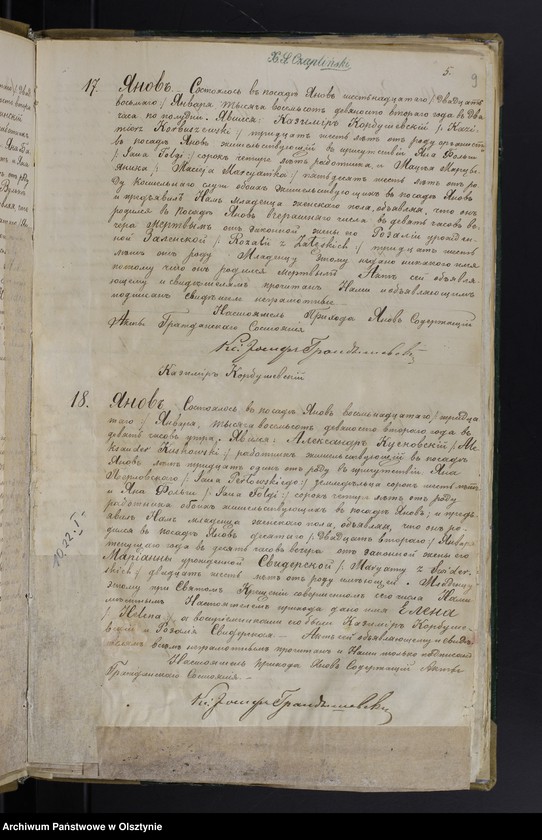 5.
9
17. Яновъ. Состоялось въ посадѣ Яновъ шестнадцатаго / двадцать
восьмаго / Января тысяча восемьсотъ девяносто втораго года въ два
часа по полудни. Явился: Казимiръ Корбушевскiй / Kazi-
тридцать шесть лѣтъ отъ роду органистъ
въ посадѣ Яновъ жительствующiй въ присутствiи Яна Фольги
/ Jana Folgi / сорокъ четыре лѣтъ работника, и
пятьдесятъ шесть лѣтъ отъ ро-
ду обоихъ жительствующихъ въ посадѣ Яновъ
и предъявилъ Намъ младенца женскаго пола, объявляя, что онъ
родился въ посадѣ Яновъ вчерашняго числа въ девять часовъ ве-
чера мертвымъ отъ законной жены его Розалiи урожден-
ной Заленской / Rozalii z Załęskich / тридцать шесть
лѣтъ отъ роду. Младенцу этому никакого имя
потому что онъ родился мертвымъ. Актъ сей объявля-
ющему и свидѣтелямъ прочитанъ Нами и объявляющимъ
подписанъ свидѣтели неграмотные
Настоятель Прихода Яновъ Содержащiй
Акты Гражданскаго Состоянiя
Казимiръ Корбушевскiй
18. Яновъ. Состоялось въ посадѣ Яновъ восемнадцатаго / тридца-
таго / Января, тысяча восемьсотъ девяносто втораго года въ
девять часовъ утра. Явился: Александръ Кучковскiй / Ale-
ksander / работникъ жительствующiй въ посадѣ
Яновъ лѣтъ тридцать одинъ отъ роду въ присутствiи Яна
земледѣльца сорокъ шесть лѣтъ
и Яна Фольги / Jana Folgi / сорокъ четыре лѣтъ отъ роду
работника обоихъ жительствующихъ въ посадѣ Яновъ; и предъ-
явилъ Намъ младенца женскаго пола, объявляя, что онъ ро-
дился въ посадѣ Яновъ десятаго / двадцать втораго / Января
текущаго года въ десять часовъ вечера отъ законной жены его
Марiанны урожденной Свидерской / Maryanny z Świder-
skich / двадцать шесть лѣтъ отъ роду имѣющей. Младенцу
этому при Святомъ Крещенiи совершенномъ сего числа Нами
Настоятелемъ прихода дано имя Елена
/ Helena / а воспрiемниками его были Казимiръ Корбуше-
вскiй и Розалiя Свидерская. Актъ сей объявляющему и свидѣ-
телямъ всѣмъ неграмотнымъ прочитанъ и Нами только подписанъ
Настоятель прихода Яновъ Содержащiй Акты
Гражданскаго Состоянiя. —
Archiwum Państwowe w Olsztynie